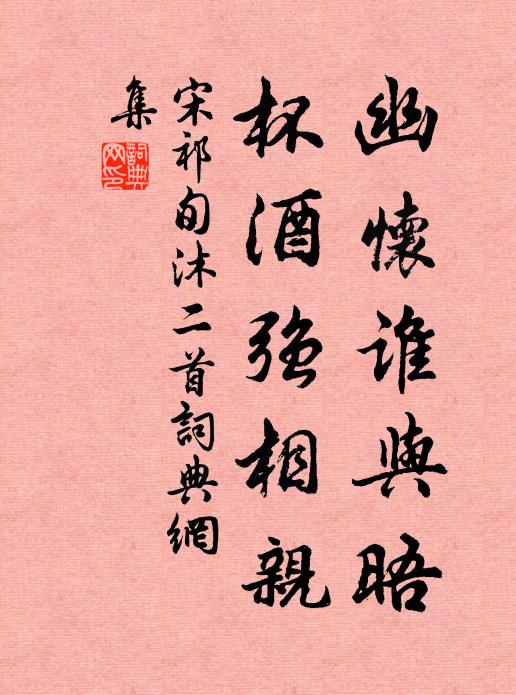 幽懷誰與晤
杯酒強相親
宋祁旬沐二首詞典網
集
詞典
網印